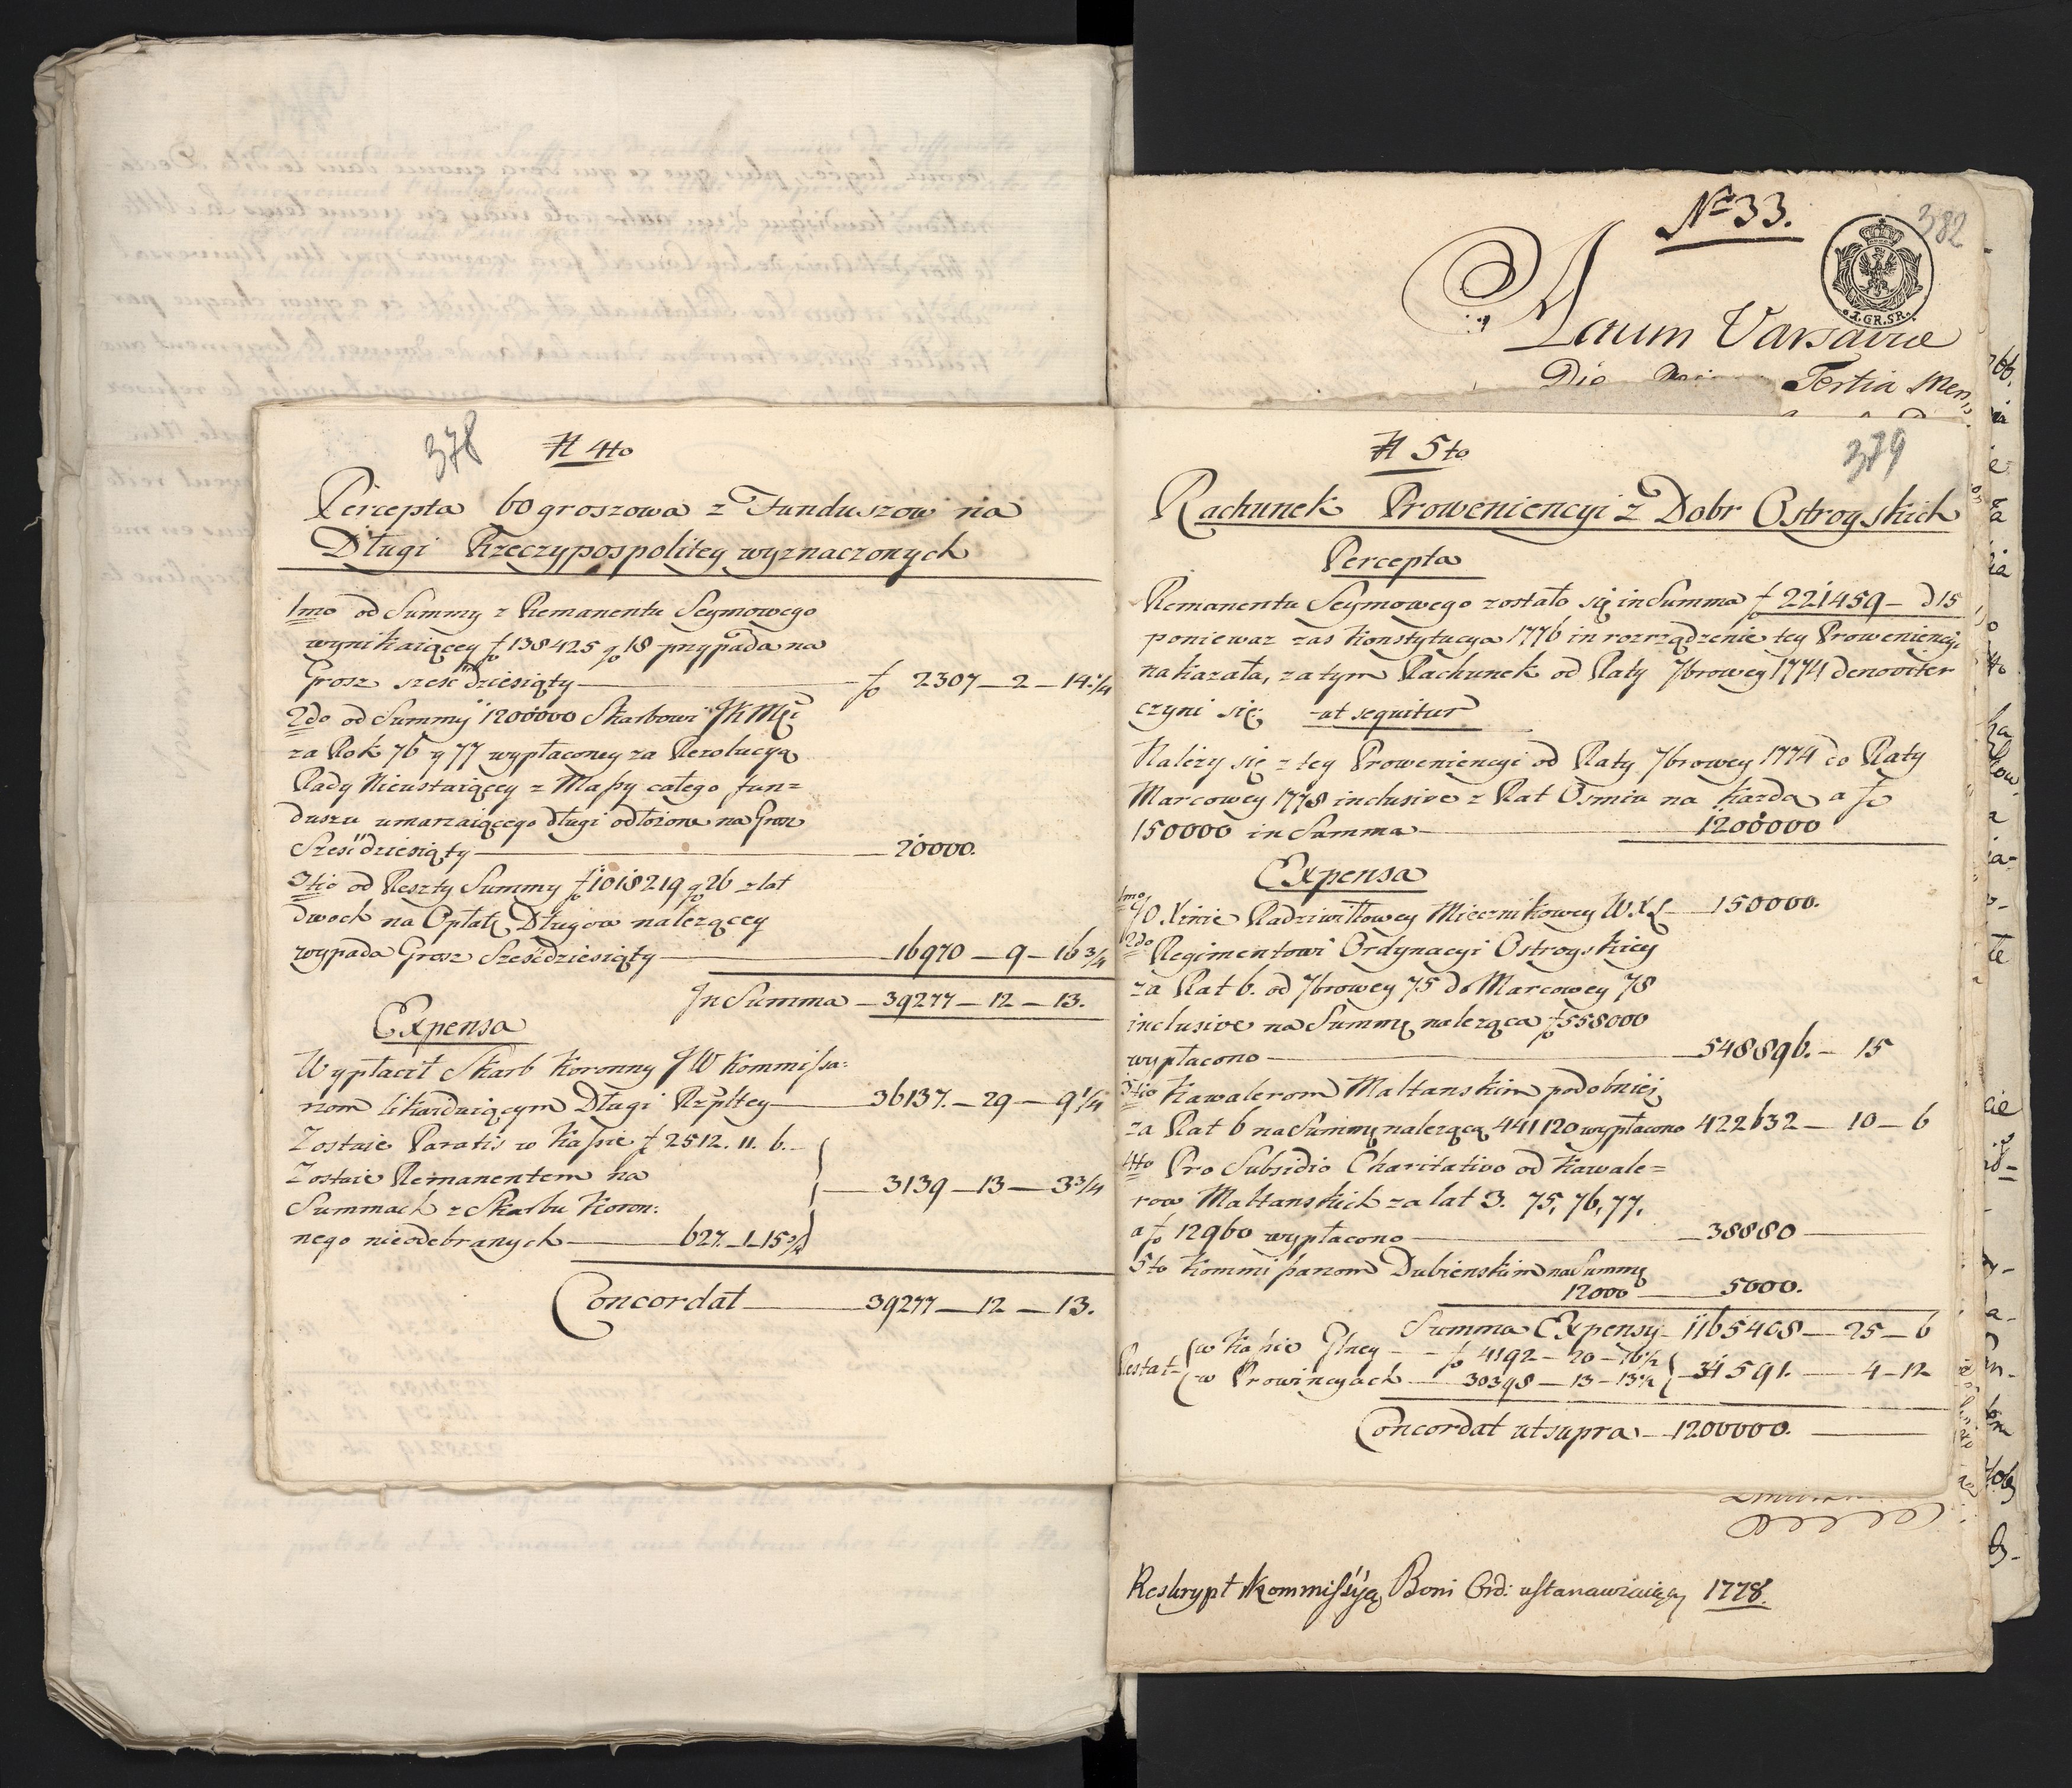 378
N 4to
Percepta 60 groszowa z Funduszow na
Długi Rzeczypospolitey wyznaczonych
1mo od Summy z Remanentu Seymowego
wynikaiącey f 138425 g 18 przypada na
Grosz sześćdziesiąty — fo 2307 — 2 — 14 1/4
2do od Summy 1200000 Skarbowi JKMci
za Rok 76 y 77 wypłaconey za Rezolucyą
Rady Nieustaiącey z Massy całego fun=
duszu umarzaiącego długi odłożone na Grosz
Sześćdziesiąty — 20000.
3tio od Reszty Summy f 1018219 g 26 z lat
dwoch na Opłatę Długow należącey
wypada Grosz Sześćdziesiąty — 16970 — 9 — 16 3/4
In Summa — 39277 — 12 — 13.
Expensa
Wypłacił Skarb Koronny JW Kommissa:
rzom likwiduiącym Długi Rzpltey — 36137. — 29 — 9 1/4
Zostaie Paratis w Kassie f 2512. 11. 6.
Zostaie Remanentem na
Summach z Skarbu Koron:
nego nieodebranych — 627. 1. 15 3/4
3139 — 13 — 3 3/4
Concordat — 39277 — 12 — 13.
No 33.
382
2.GR.SR.
Actum Varsaviae
Die Tertia Men
379
N 5to
Rachunek Proweniencyi z Dobr Ostrogskich
Percepta
Remanentu Seymowego zostało się in Summa f 221459 — d 15
ponieważ zaś Konstytucya 1776 in rozrządzenie tey Proweniencyi
nakazała, zatym Rachunek od Raty 7browey 1774 denoviter
czyni się. ut sequitur
Należy się z tey Proweniencyi od Raty 7browey 1774 do Raty
Marcowey 1778 inclusive z Rat Osmiu na każdą a fo
150000 in Summa — 1200000
Expensa
1mo JO Xżnie Radziwiłłowey Miecznikowey W.X.L — 150000.
2do Regimentowi Ordynacyi Ostrogskiey
za Rat 6. od 7browey 75 do Marcowey 78
inclusive na Summę należącą fo 558000
wypłacono — 548896. — 15
3tio Kawalerom Maltanskim podobnież
za Rat 6 na Summę należącą 441120 wypłacono 422632 — 10 — 6
4to Pro Subsidio Charitativo od Kawale=
row Maltanskich za lat 3. 75, 76, 77.
a fo 12960 wypłacono — 38880 —
5to Kommissarzom Dubienskim na Summę
12000 — 5000.
Summa Expensy — 1165408 — 25 — 6
Restat w Kassie Głney — fo 4192 — 20 — 16 1/2
w Prowincyach — 30398 — 13 — 13 1/2
34591. — 4 — 12
Concordat ut supra — 1200000.
Reskrypt Kommissyą Boni Ord: ustanawiaiący 1778.